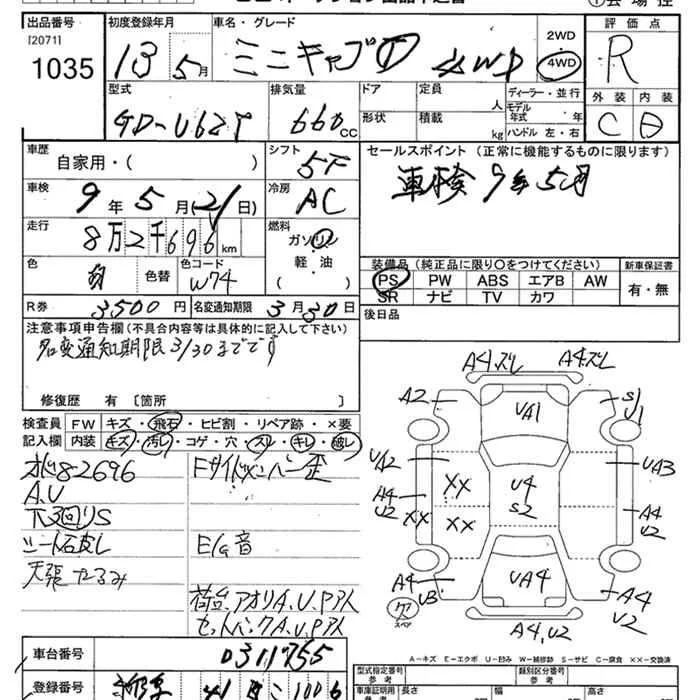 出品番号 初度登録年月 車名・グレード 2WD 評価点
[2071]
1035 13 5月 ミニキャブ① 4WD 4WD R
型式 排気量 ドア 定員 人 ディーラー・並行 外装 内装
GD-U62T 660cc 形状 積載 kg モデル年式 年 C D
ハンドル 左・右
車歴 自家用・( ) シフト 5F セールスポイント (正常に機能するものに限ります)
車検 9年 5月(21日) 冷房 AC 車検 9年5月
走行 8万2千696km 燃料 ガソリン
軽・油
( )
色 白 色替 色コード W74 装備品 (純正品に限り○をつけてください) 新車保証書
PS PW ABS エアB AW 有・無
SR ナビ TV カワ
R券 3,500円 名変通知期限 3月30日 後日品
注意事項申告欄(不具合内容等は具体的に記入して下さい)
名変通知期限3/30までです
修復歴 有 [箇所
検査員 FW キズ・飛石・ヒビ割・リペア跡・×要
記入欄 内装 キズ・汚レ・コゲ・穴・スレ・キレ・破レ
8-2696 Fサイドメンバー歪
A.U
下廻りS
シート石皮レ E/G音
天張たるみ
荷台,アオリA.U.P.アト
A4.ズレ A4ズレ
A2 UA1 S1
U1
UA2 ×× U4 UA3
A4 S2 A4
U2 ×× ×× U2
A4 U3 UA4 A4
U2
スペア A4,U2
A-キズ E-エクボ U-凹み W-補修跡 S-サビ C-腐食 ××-交換済
車台番号 0311755
登録番号 41 1006
型式指定番号 類別区分番号
参考 参考
車庫証明用 長さ 幅 高さ